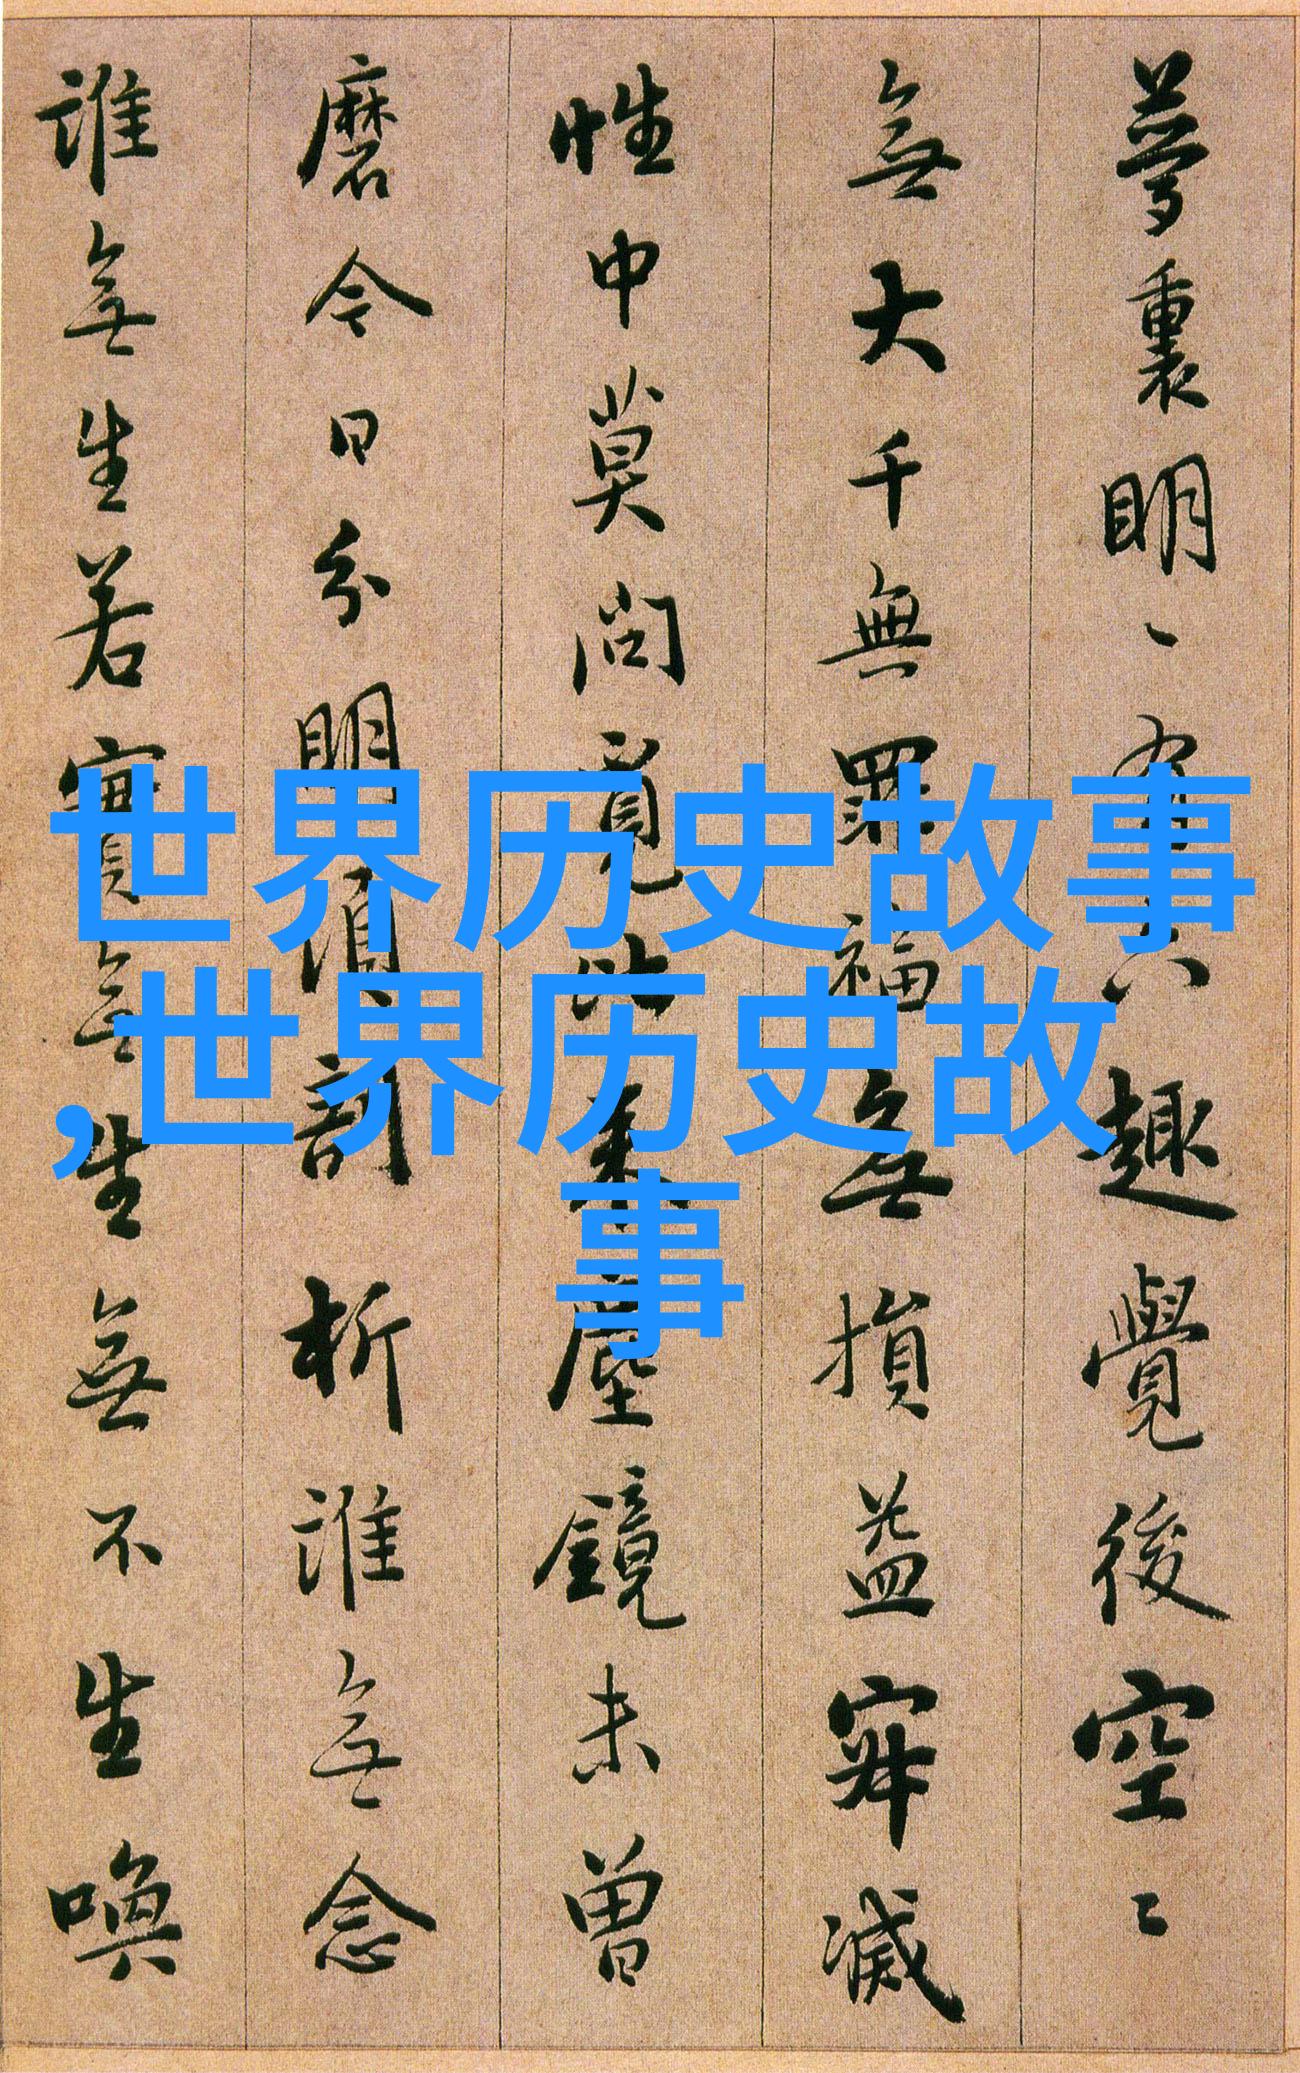 夢裏明〻有六趣覺後空〻
無大千無罪福無損益寂滅
性中莫問覓比来塵鏡未曾
磨令日分明須剖析誰無念
誰無生若實無生無不生喚
世界历史故事
,世界历史故
事